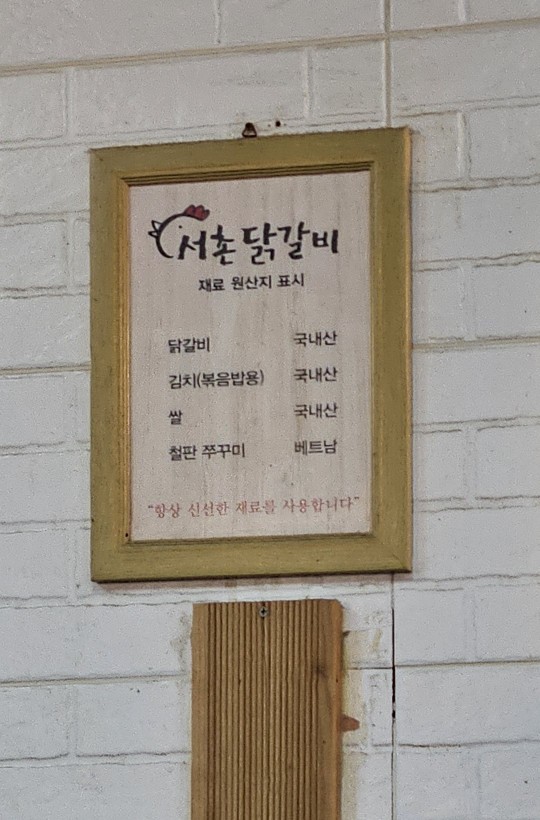 서촌 닭갈비
재료 원산지 표시
닭갈비 국내산
김치(볶음밥용) 국내산
쌀 국내산
철판 쭈꾸미 베트남
"항상 신선한 재료를 사용합니다"